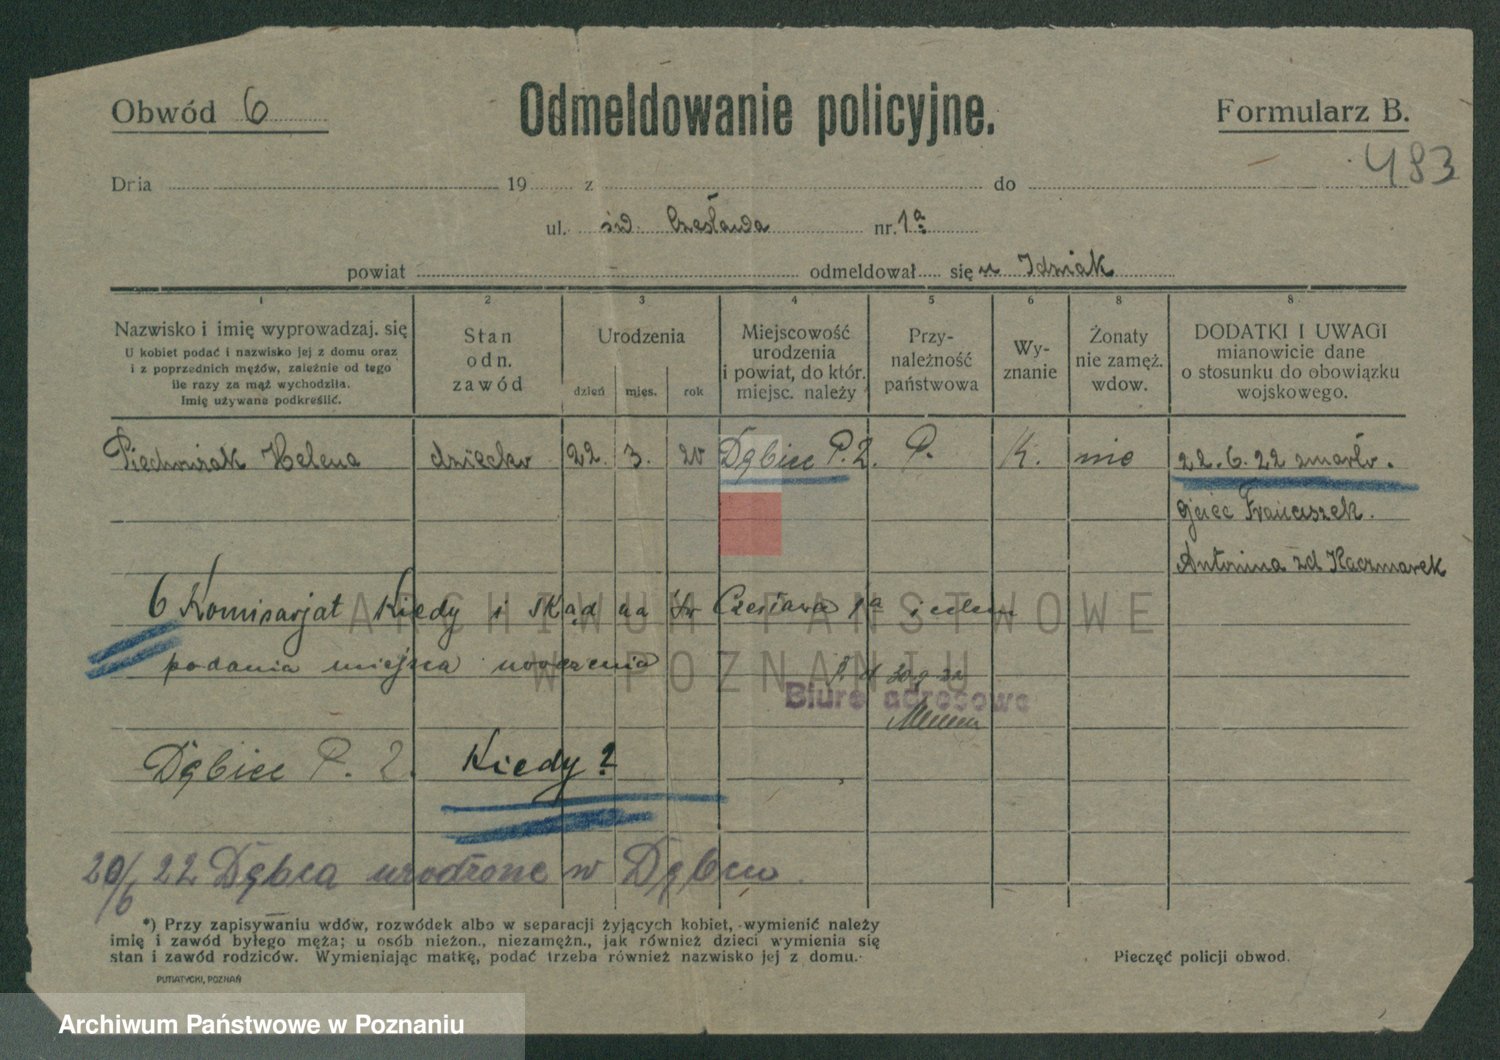 Obwód 6
Odmeldowanie policyjne.
Formularz B.
483
Dnia 19 z do
ul. św. Czesława nr. 1a
powiat odmeldował się u Idziak
1 2 3 4 5 6 8 8
Nazwisko i imię wyprowadzaj. się
U kobiet podać i nazwisko jej z domu oraz
i z poprzednich mężów, zależnie od tego
ile razy za mąż wychodziła.
Imię używane podkreślić.
Stan
odn.
zawód
Urodzenia
dzień mies. rok
Miejscowość
urodzenia
i powiat, do któr.
miejsc. należy
Przy-
należność
państwowa
Wy-
znanie
Żonaty
nie zamęż.
wdow.
DODATKI I UWAGI
mianowicie dane
o stosunku do obowiązku
wojskowego.
Helena dziecko 22. 3. 20 Dębiec P. P. K. nie 22.6.22 zmarło.
ojciec Franciszek.
Antonina zd Kaczmarek
6 Komisarjat Kiedy i skąd na Św Czesława 1a i celem
podania miejsca urodzenia
Biuro adresowe
Dębiec P. Kiedy?
20/6 22 Dębca urodzone w Dębcu.
*) Przy zapisywaniu wdów, rozwódek albo w separacji żyjących kobiet, wymienić należy
imię i zawód byłego męża; u osób nieżon., niezamężn., jak również dzieci wymienia się
stan i zawód rodziców. Wymieniając matkę, podać trzeba również nazwisko jej z domu.
Pieczęć policji obwod.
PUTIATYCKI, POZNAŃ
ARCHIWUM PAŃSTWOWE
W POZNANIU
Archiwum Państwowe w Poznaniu